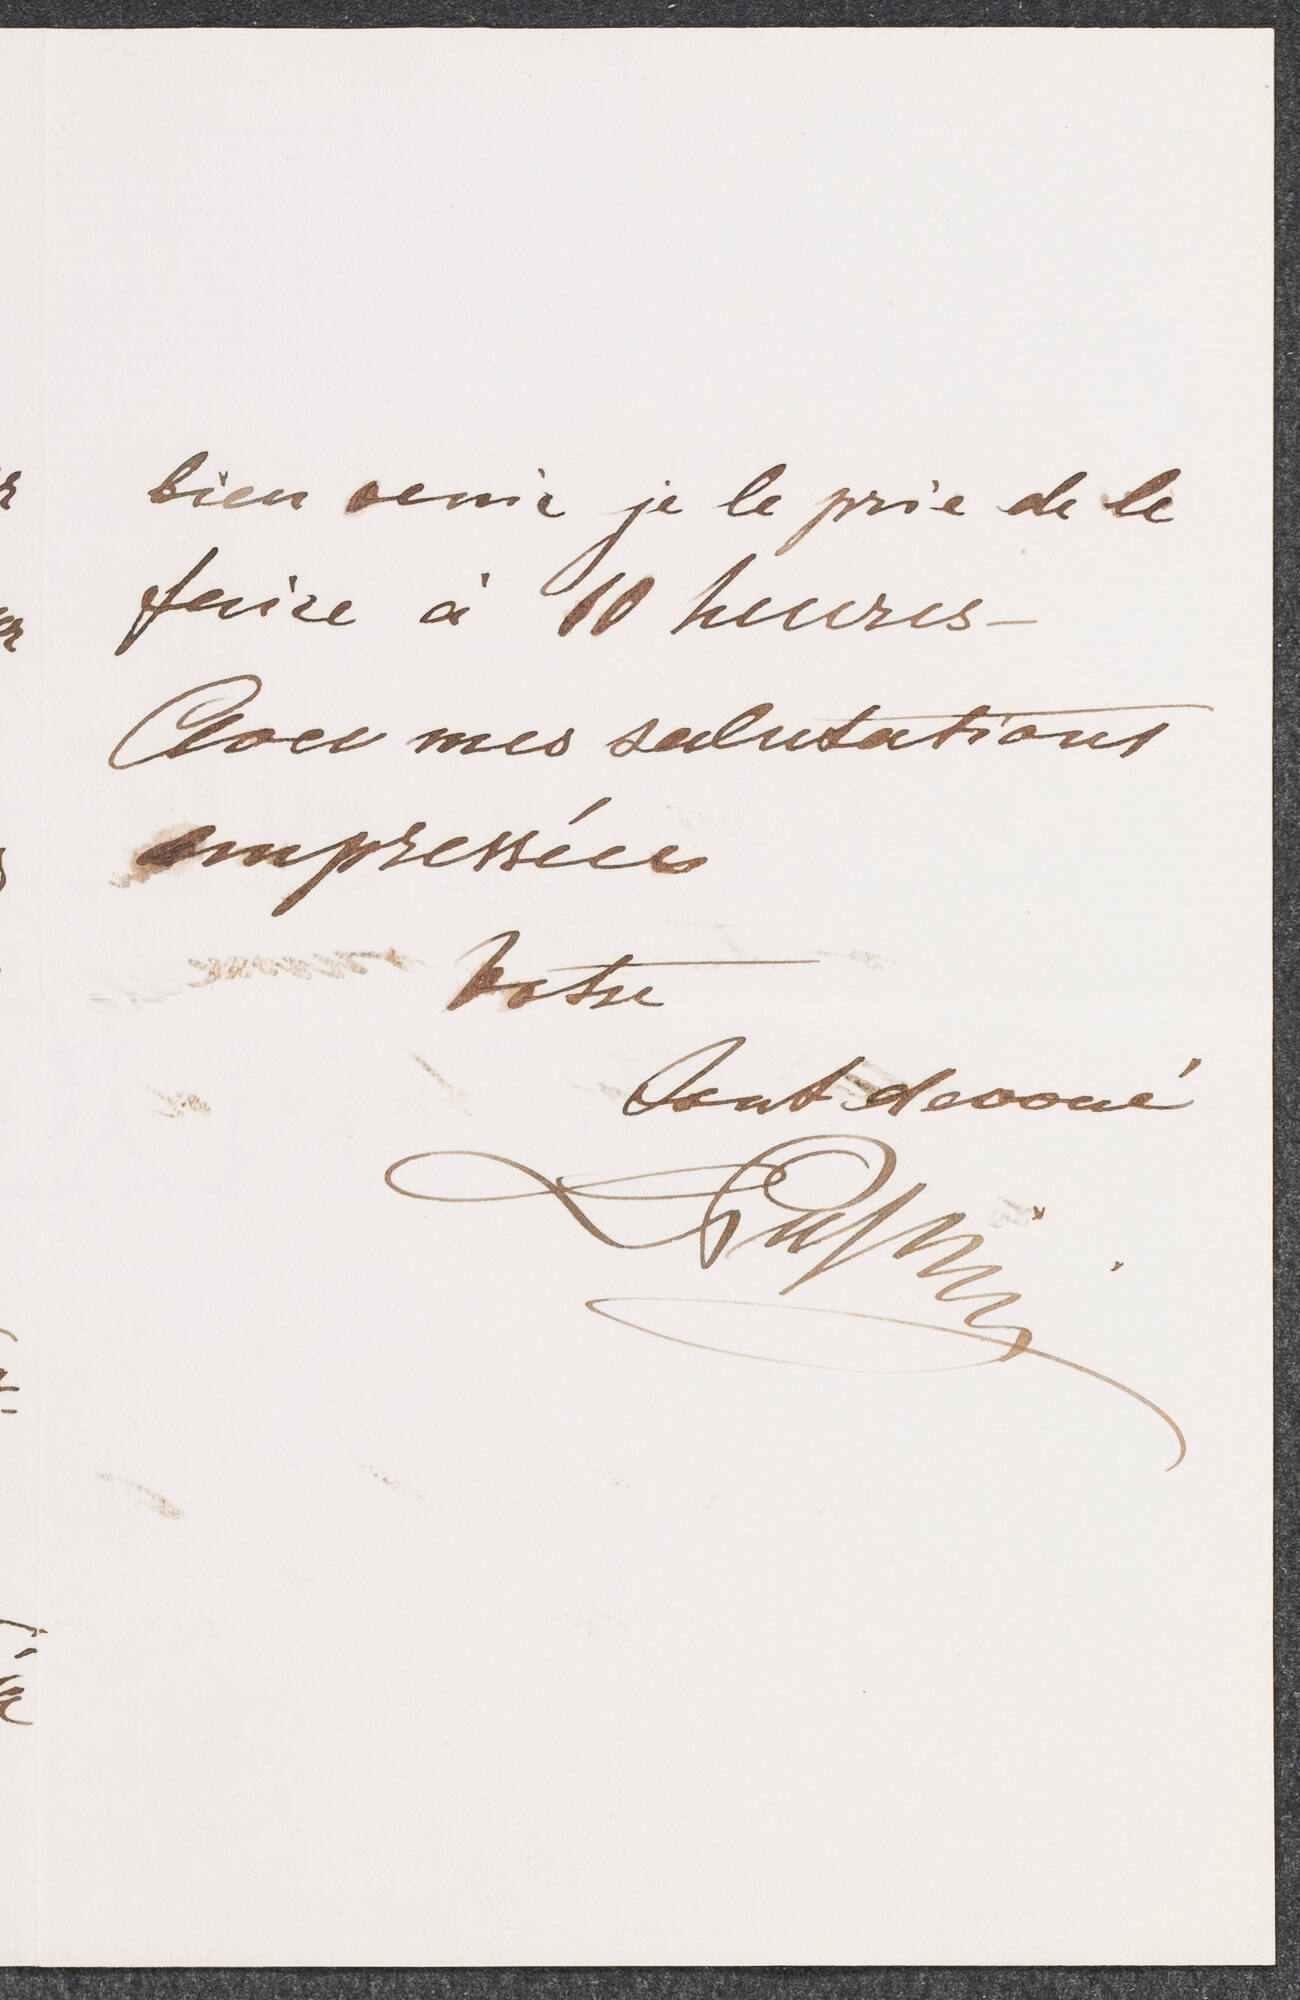 bien venir je le prie de le
faire à 10 heures –
Avec mes salutations
empressées
Votre
Tout devoué